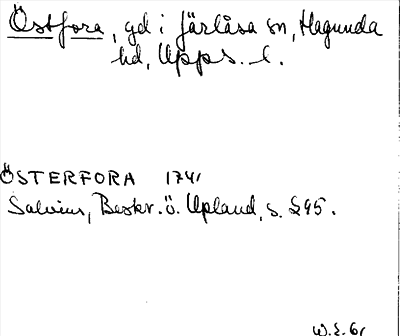 Östfora, gd i Järlåsa sn, Hagunda
hd, Upps. l.
ÖSTERFORA 1741
Salvius, Beskr. ö. Upland, s. 295.
W.E. 61